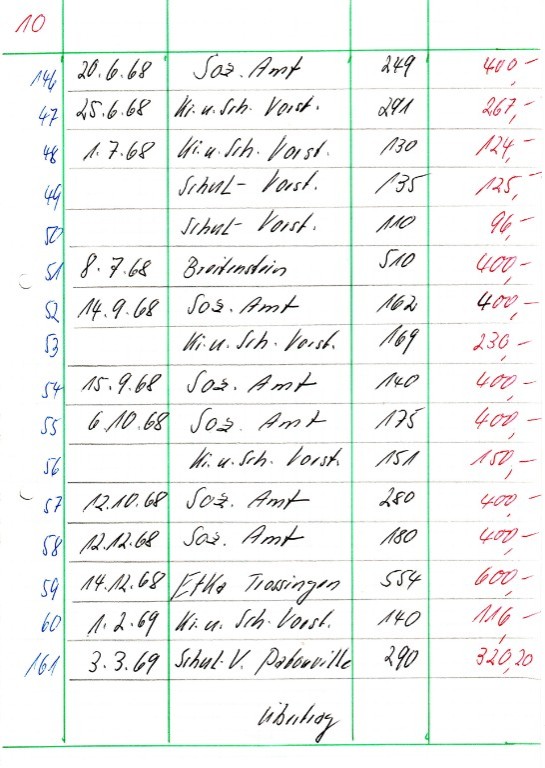 10
146 20.6.68 Soz. Amt 249 400,-
47 25.6.68 Ki.u.Sch. Vorst. 291 267,-
48 1.7.68 Ki.u.Sch. Vorst. 130 124,-
49 Schul- Vorst. 135 125,-
50 Schul- Vorst. 110 96,-
51 8.7.68 Breitenstein 510 400,-
52 14.9.68 Soz. Amt 162 400,-
53 Ki.u.Sch. Vorst. 169 230,-
54 15.9.68 Soz. Amt 140 400,-
55 6.10.68 Soz. Amt 175 400,-
56 Ki.u.Sch. Vorst. 151 150,-
57 12.10.68 Soz. Amt 280 400,-
58 12.12.68 Soz. Amt 180 400,-
59 14.12.68 Trossingen 554 600,-
60 1.2.69 Ki.u.Sch. Vorst. 140 116,-
161 3.3.69 Schul-V. 290 320,20
Übertrag